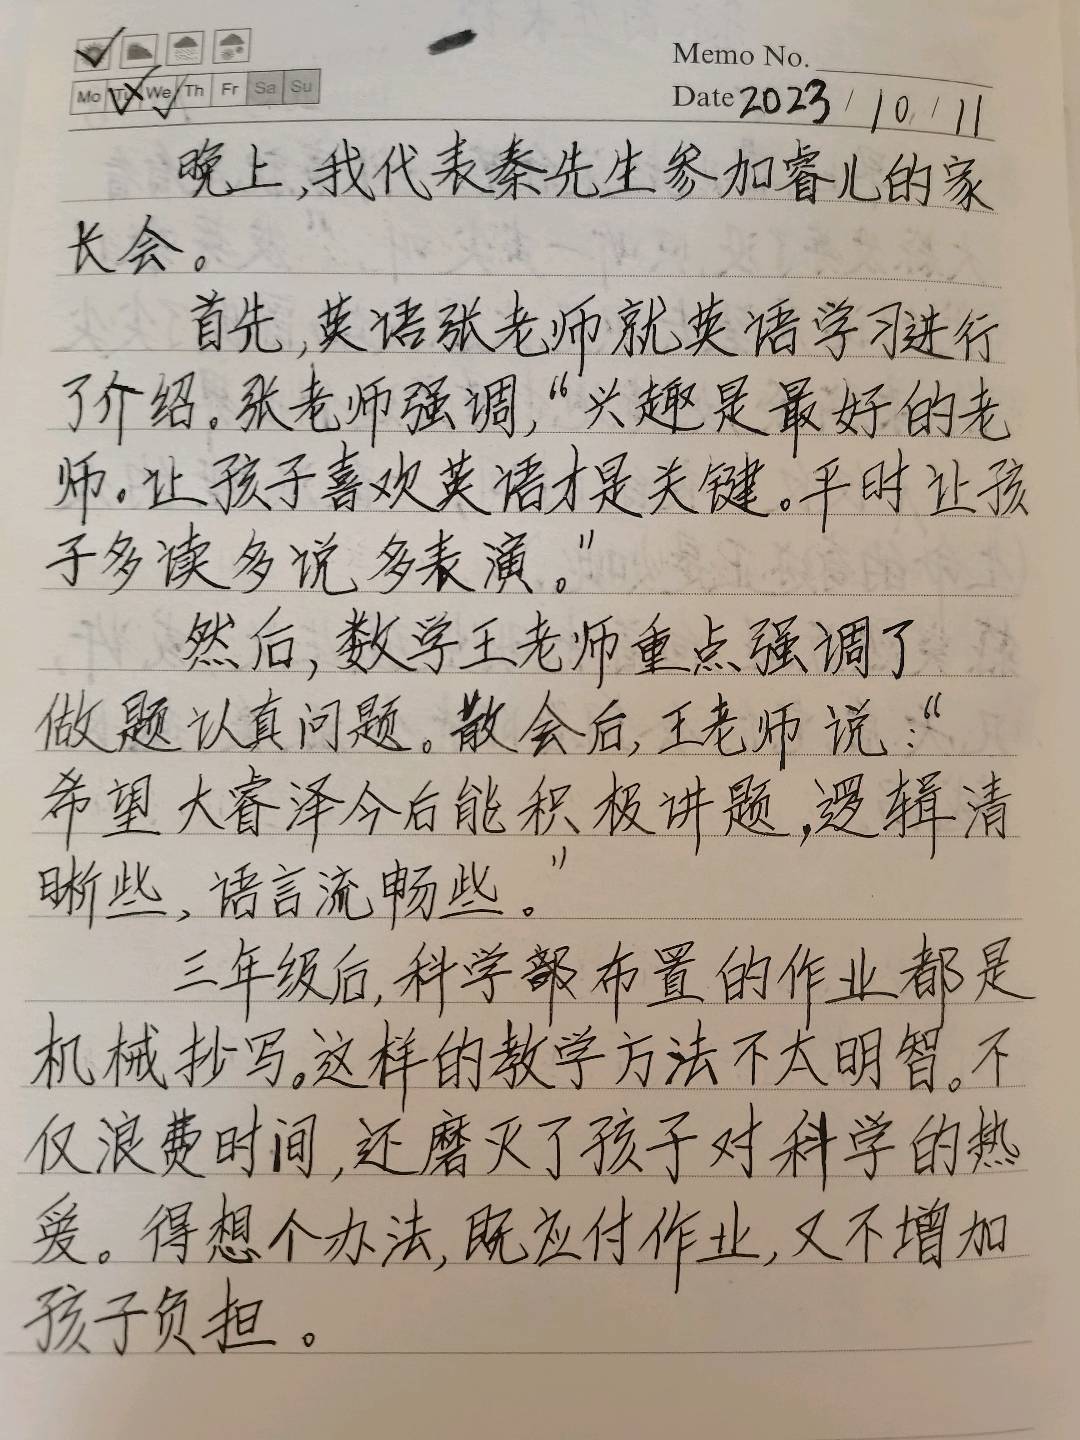 Memo No.
Mo Tu We Th Fr Sa Su
Date 2023/10/11
晚上,我代表秦先生参加睿儿的家
长会。
首先,英语张老师就英语学习进行
了介绍。张老师强调,“兴趣是最好的老
师。让孩子喜欢英语才是关键。平时让孩
子多读多说多表演。”
然后,数学王老师重点强调了
做题认真问题。散会后,王老师说:“
希望大睿泽今后能积极讲题,逻辑清
晰些,语言流畅些。”
三年级后,科学部布置的作业都是
机械抄写。这样的教学方法不太明智。不
仅浪费时间,还磨灭了孩子对科学的热
爱。得想个办法,既应付作业,又不增加
孩子负担。